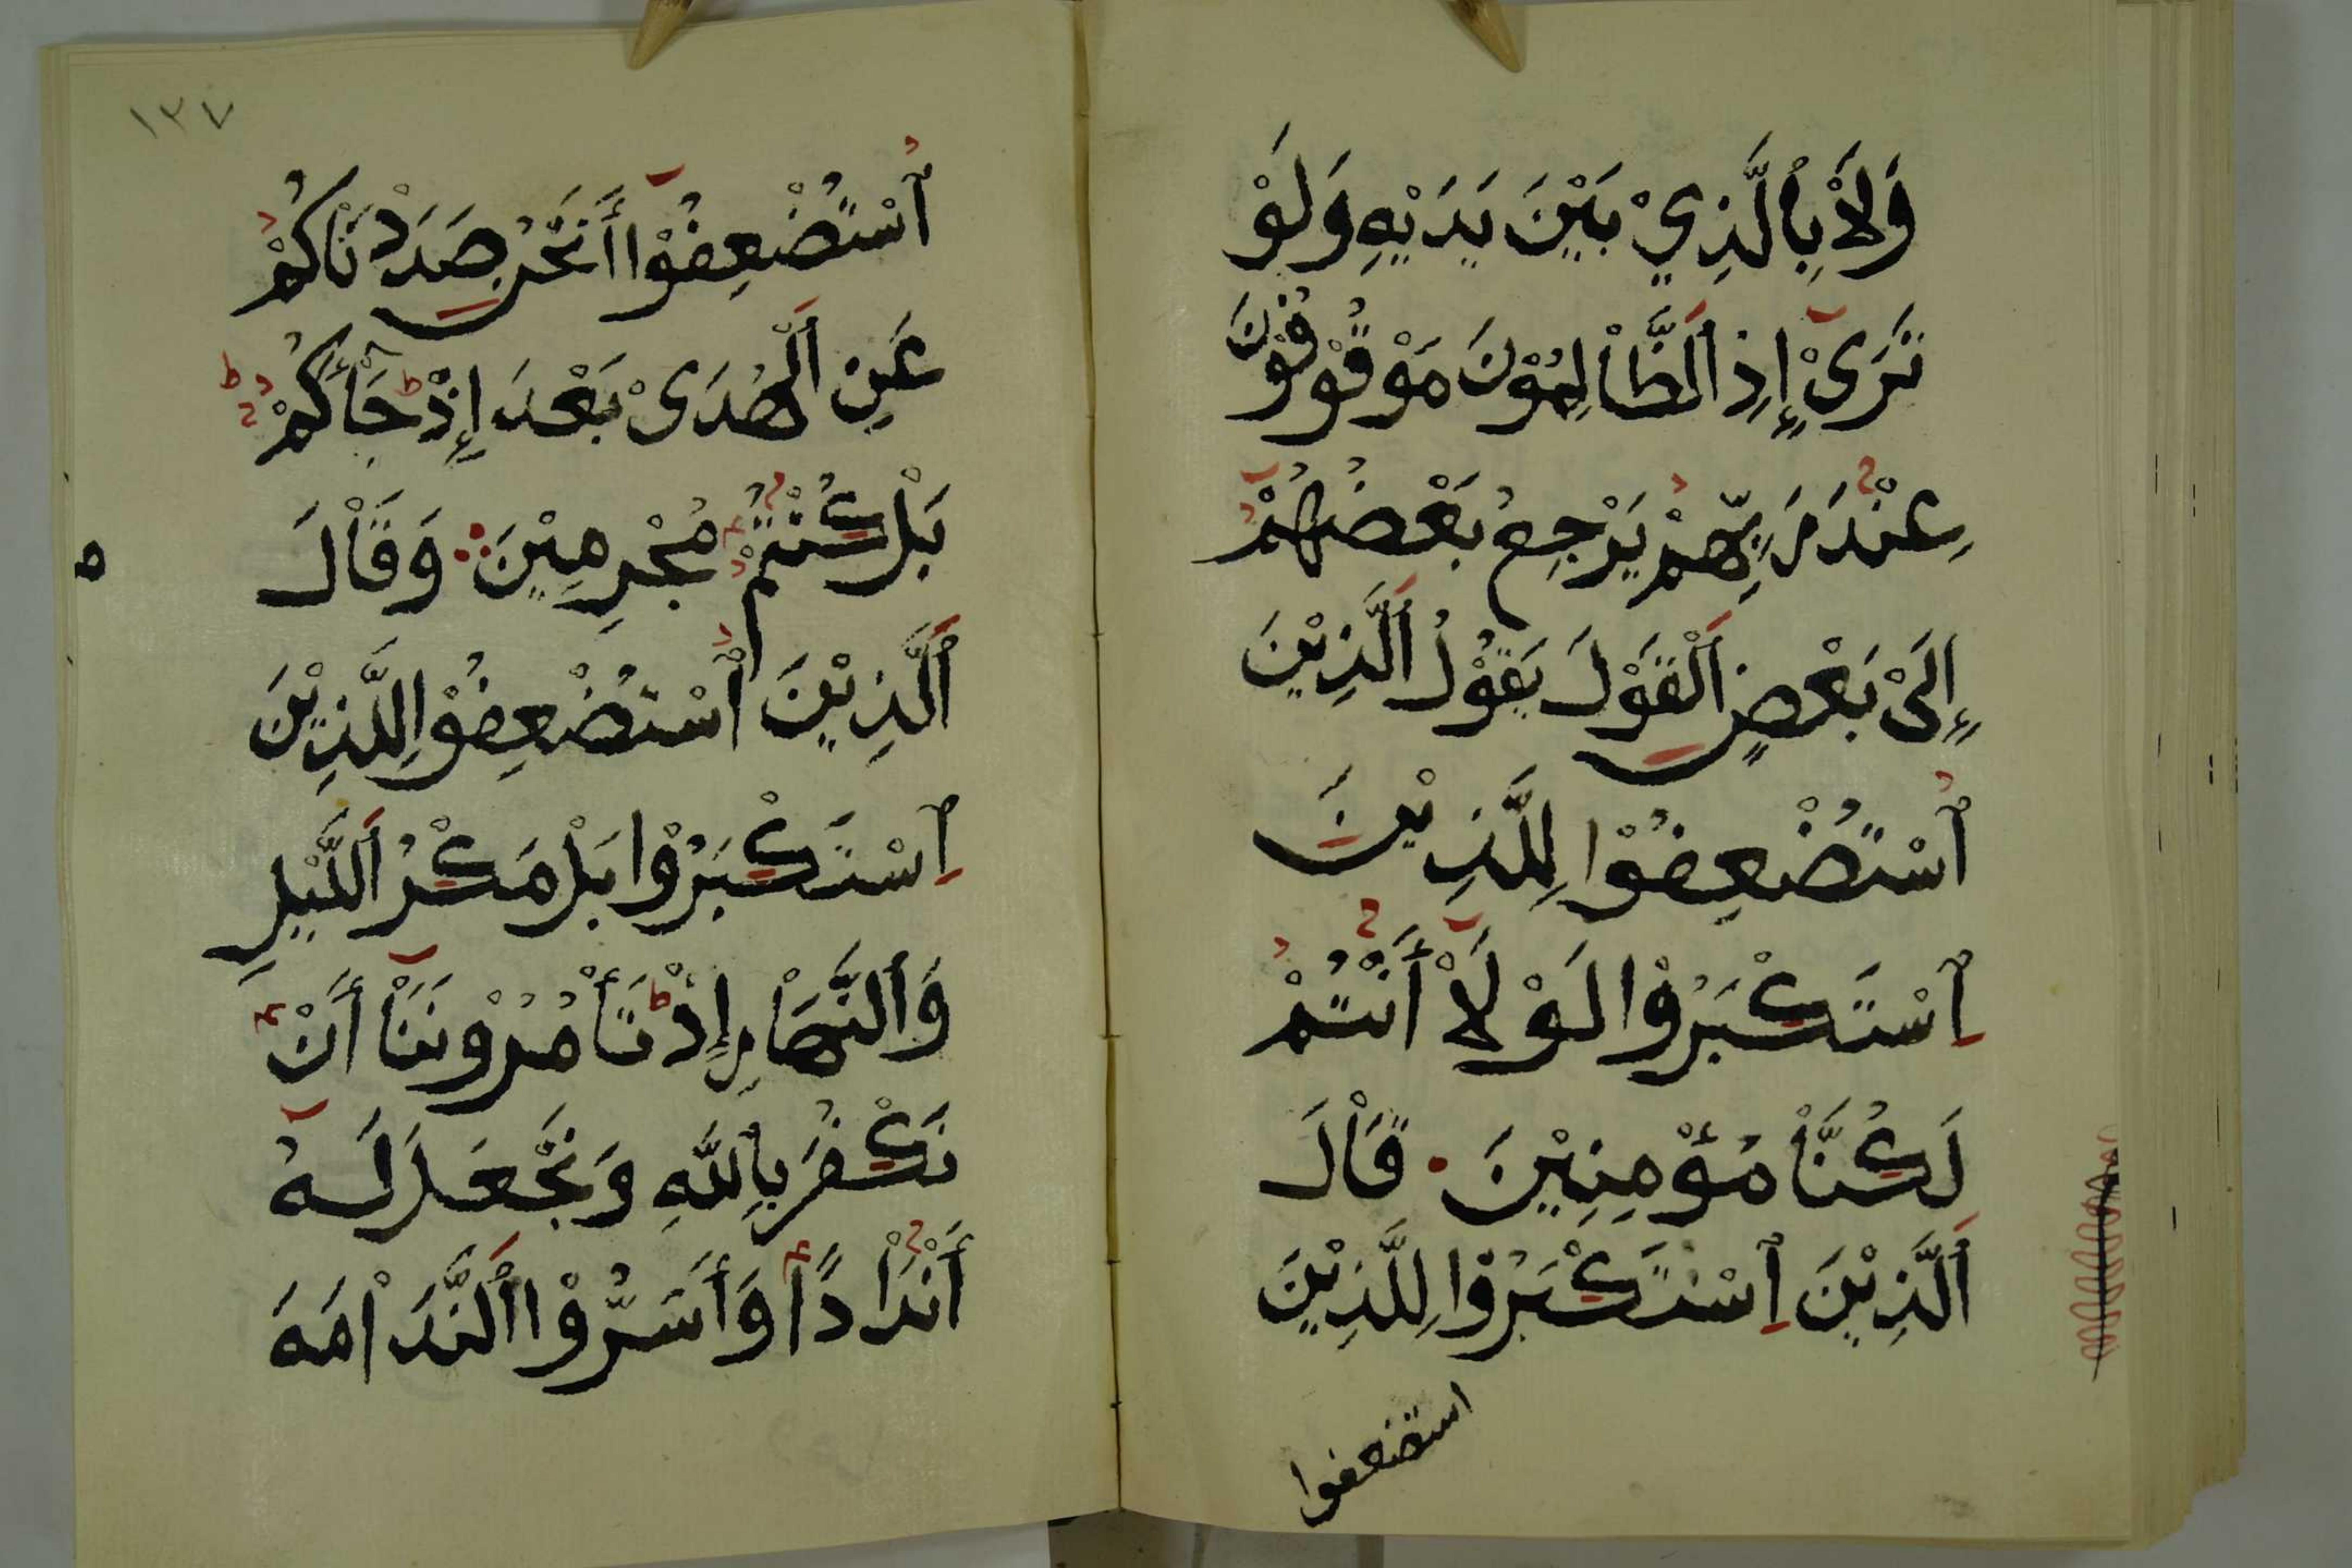 وَلَاْ بِاْلَّذِيْ بَيْنَ يَدَيْهِ وَلَوْ
تَرَىْ إِذِ اْلظَّاْلِمُوْنَ مَوْقُوْفُوْنَ
عِنْدَ رَبِّهِمْ يَرْجِعُ بَعْضُهُمْ
إِلَىْ بَعْضٍ اَلْقَوْلَ يَقُوْلُ اَلَّذِيْنَ
اُسْتُضْعِفُوْا لِلَّذِيْنَ
اِسْتَكْبَرُوْا لَوْلَاْ أَنْتُمْ
لَكُنَّاْ مُؤْمِنِيْنَ قَاْلَ
اَلَّذِيْنَ اِسْتَكْبَرُوْا لِلَّذِيْنَ
استضعفوا
١٣٧
اُسْتُضْعِفُوْا أَنَحْنُ صَدَدْنَاْكُمْ
عَنِ اَلْهُدَىْ بَعْدَ إِذْ جَاْءَكُمْ
بَلْ كُنْتُمْ مُجْرِمِيْنَ وَقَاْلَ
اَلَّذِيْنَ اُسْتُضْعِفُوْا لِلَّذِيْنَ
اِسْتَكْبَرُوْا بَلْ مَكْرُ اَللَّيْلِ
وَاَلنَّهَاْرِ إِذْ تَأْمُرُوْنَنَاْ أَنْ
نَكْفُرَ بِاللَّهِ وَنَجْعَلَ لَهُ
أَنْدَاْدًا وَأَسَرُّوْا اَلنَّدَاْمَةَ